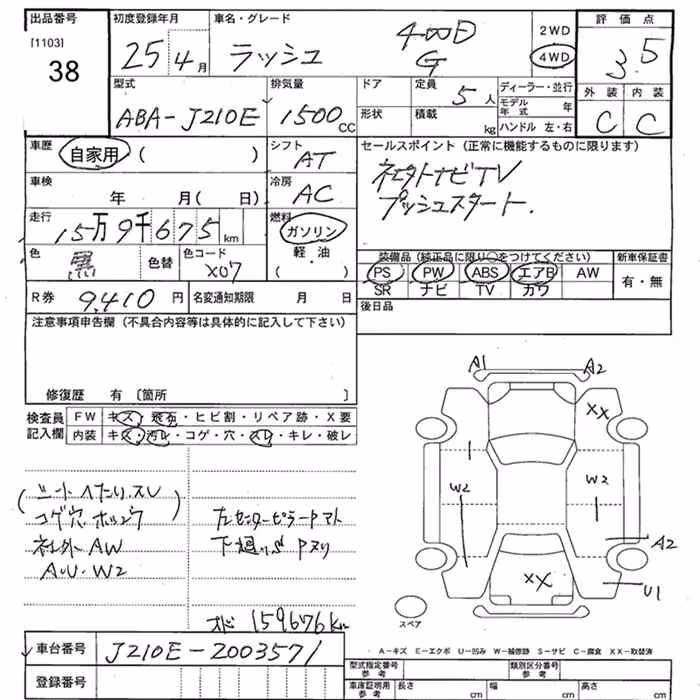 出品番号 初度登録年月 車名・グレード 評価点
[1103] 38 25年4月 ラッシュ 400D G 2WD 4WD 3.5
型式 排気量 ドア 定員 5人 ディーラー・並行 外装 内装
ABA-J210E 1500CC 形状 積載 kg モデル年式 年 C C
ハンドル 左・右
車歴 自家用 ( ) シフト AT セールスポイント(正常に機能するものに限ります)
車検 年 月(日) 冷房 AC 社外ナビTV
プッシュスタート.
走行 15万9千675km 燃料 ガソリン
色 黒 色替 色コード X07 軽・油 ( ) 装備品(純正品に限り○をつけてください) 新車保証書
PS PW ABS エアB AW 有・無
SR ナビ TV カワ
R券 9,410円 名変通知期限 月 日 後日品
注意事項申告欄(不具合内容等は具体的に記入して下さい)
修復歴 有〔箇所 〕
検査員記入欄 FW キズ・飛石・ヒビ割・リペア跡・X要
内装 キズ・汚レ・コゲ・穴・スレ・キレ・破レ
シートヘたり.スレ
コゲ穴.ホツレ
社外AW
A.U.W2
左センターピラーPマト
下廻りS Pヌリ
オド 159676km
A1 A2
XX
W2 W2
A2
XX U1
スペア
A-キズ E-エクボ U-凹み W-補修跡 S-サビ C-腐食 XX-取替済
車台番号 J210E-2003571
登録番号
型式指定番号 参考 類別区分番号 参考
車庫証明用 参考 長さ cm 幅 cm 高さ cm